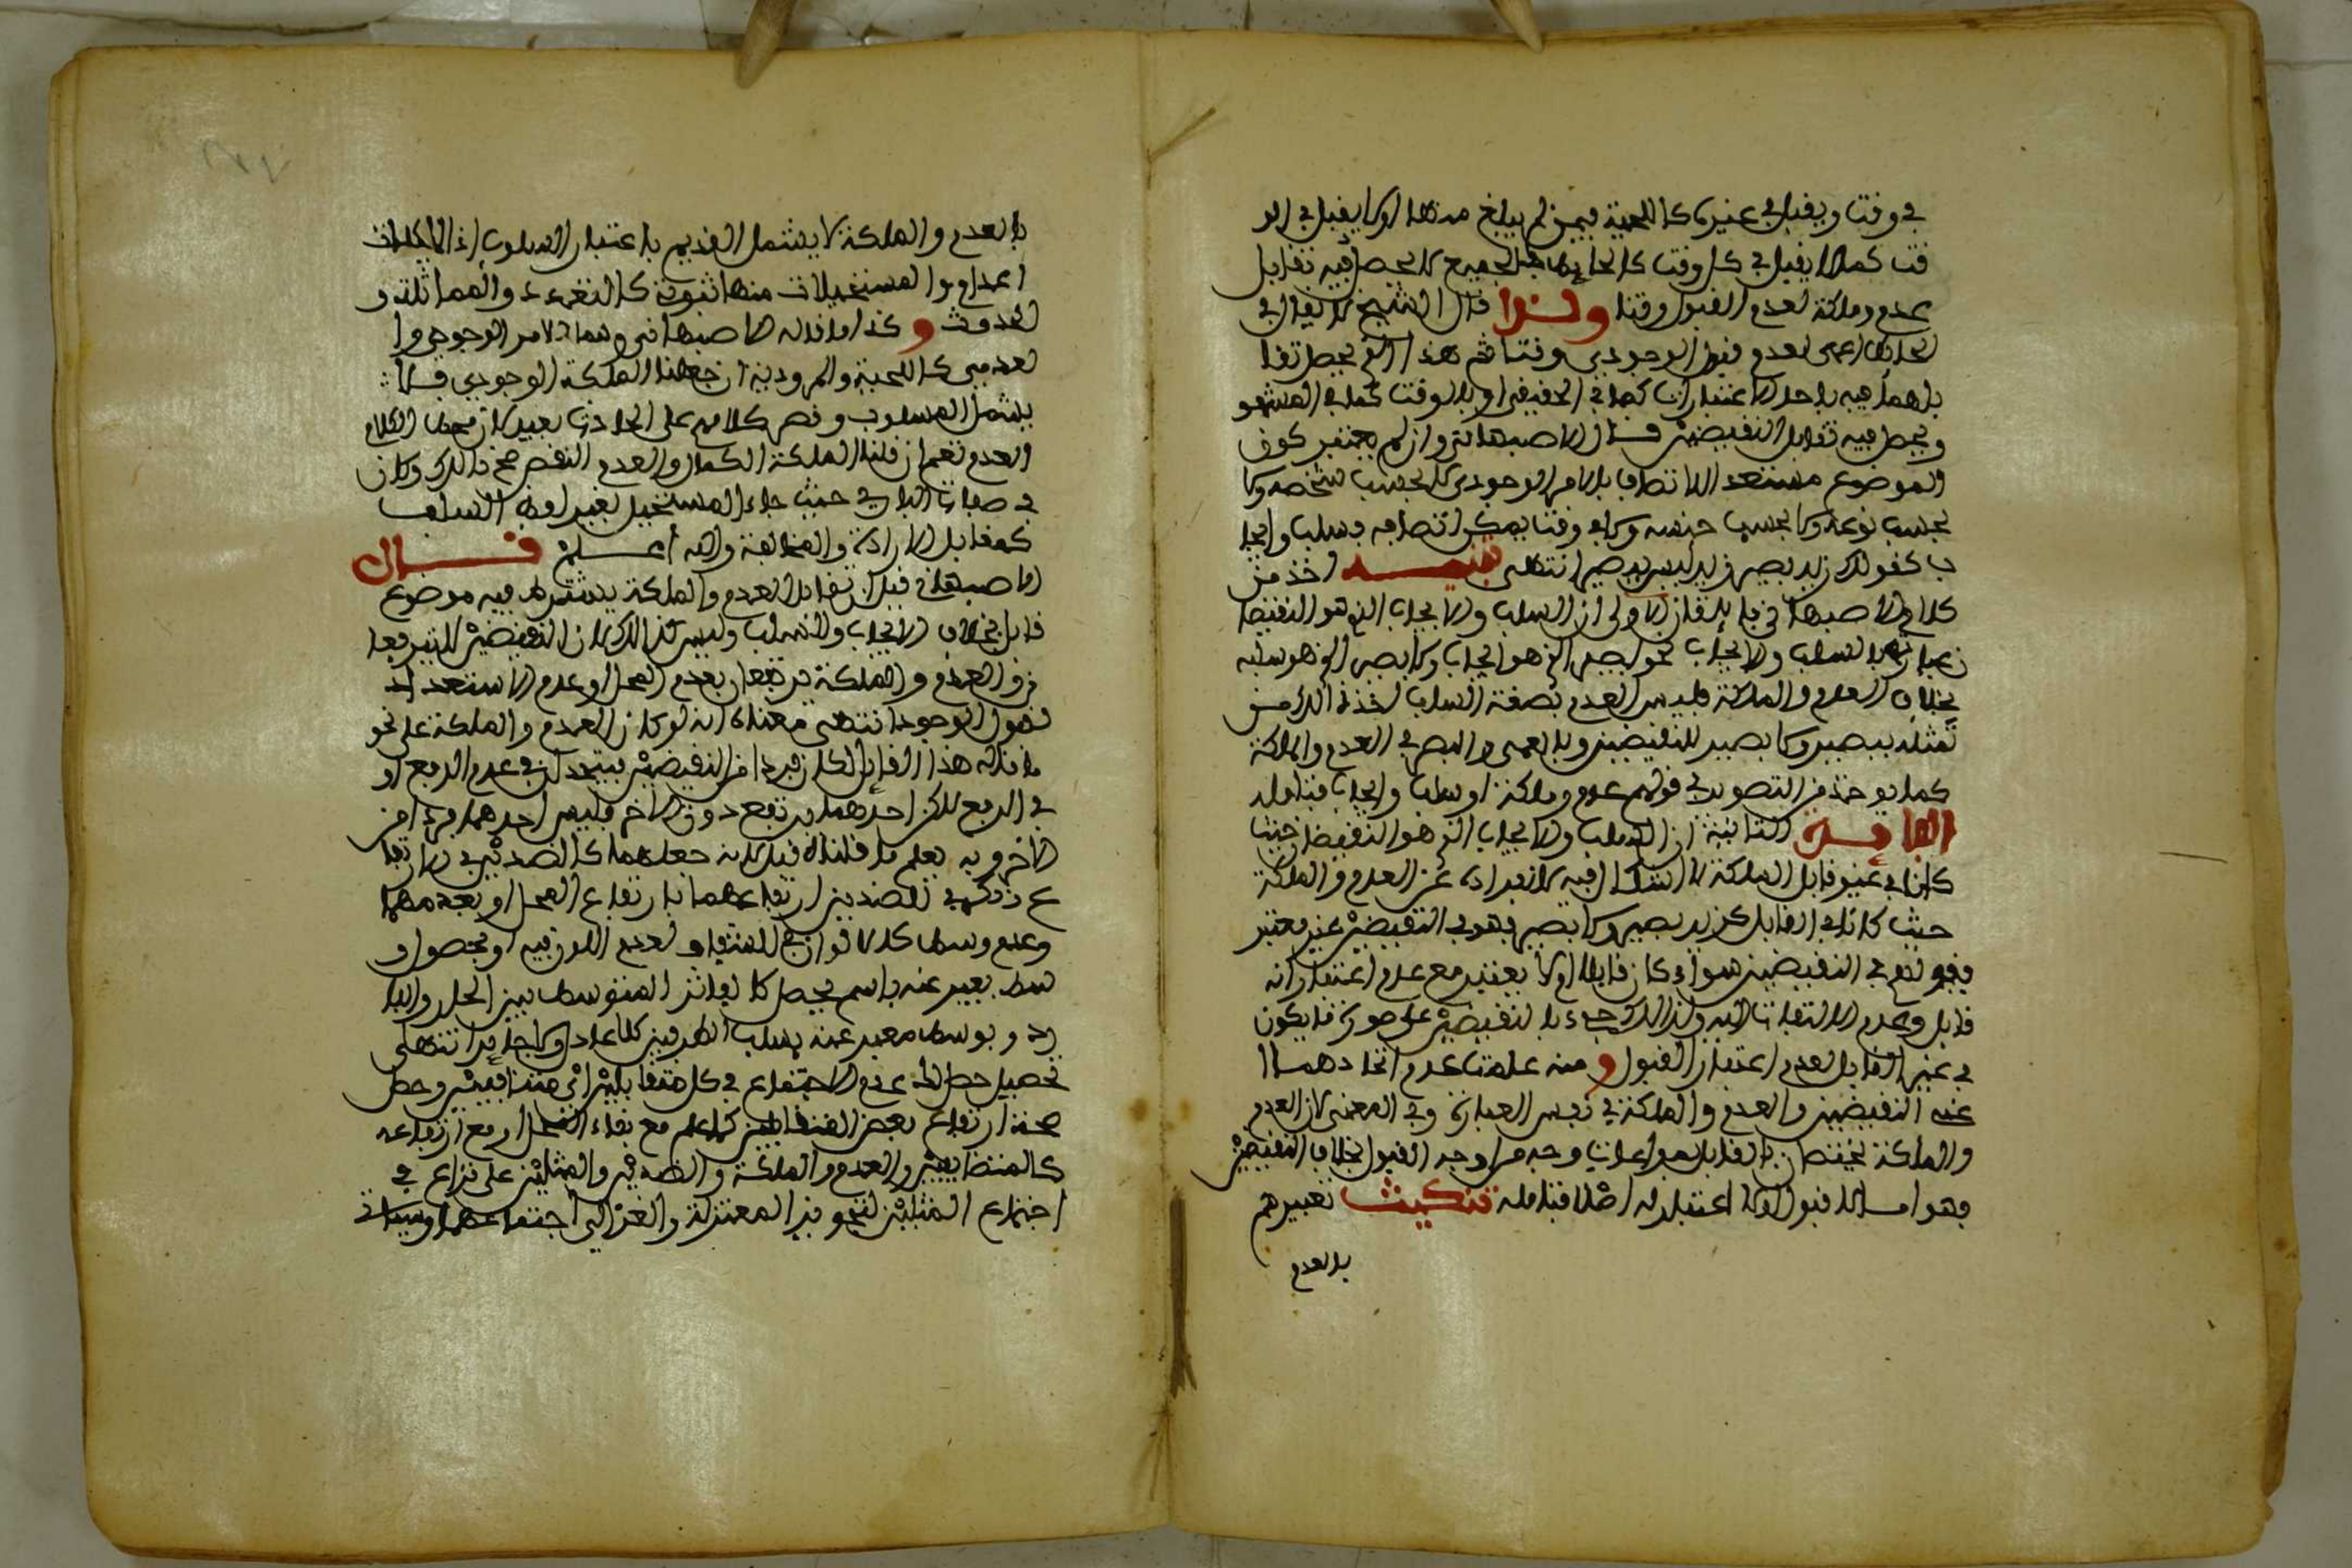 في وقت ويقبل في غيره كاللحية فيمن لم يبلغ مدتها او لا يقبل في الو
قت كما لا يقبل في كل وقت كالحائط الجميع لا يحصل فيه تقابل
عدم وملكة لعدم القبول وقتا ولذا قال الشيخ لا يقال في
الحائط اعمى لعدم قبول الوجودي وقتا ثم هذا الذي يحصل تقا
بلهما فيه باحد الاعتبارات كما في الحقيقي او بالوقت كما في المشهو
ويحصل فيه تقابل النقيضين قال الاصبهاني وان لم يعتبر كون
الموضوع مستعد الاتصاف بالامر الوجودي لا بحسب شخصه ولا
بحسب نوعه ولا بحسب جنسه ولا في وقت يمكن اتصافه فسلب وايجا
ب كقولك زيد بصير زيد ليس ببصير انتهى تنبيه اخذ من
كلام الاصبهاني فائدتان الاولى ان السلب والايجاب الذي هو النقيضا
ن عبارتهما السلب والايجاب نحو بصير الذي هو ايجاب ولا بصير الذي هو سلبه
بخلاف العدم والملكة فليس العدم بصفة السلب اخذ ذالك من
تمثيله ببصير ولا بصير للنقيضين وبالعمى والبصر في العدم والملكة
كما يوخذ من التصوير في قولهم عدم وملكة او سلب وايجاب فتامله
الفائدة الثانية ان السلب والايجاب الذي هو النقيضان حيث
كان في غير قابل الملكة لا اشكال فيه لانفراده عن العدم والملكة
حيث كانا في القابل كزيد بصير ولا بصير فهو في النقيضين غير معتبر
فيقع في النقيضين سواء كان قابلا ام لا يعتبر مع عدم اعتبار انه
قابل وعدم الالتفات اليه ولذالك جاء بالنقيضين على صورة ما يكون
في غير القابل لعدم اعتبار القبول ومنه علمت عدم اتحادهما
عند النقيضين والعدم والملكة في نفس العبارة وفي المعنى لان العدم
والملكة يختصان بالقابل بمراعات وجه من اوجه القبول بخلاف النقيضين
فهو امساك القبول ولا اعتبار له اصلا فتامله تنكيت تعبيرهم
بالعدم
بالعدم والملكة لا يشمل القديم باعتبار السلوب اذ
اعدام والمستحيلات منها ثبوت كالتعدد والمماثلة و
الحدوث وكذا ما قاله الاصبهاني وهما الامر الوجودي وا
لعدمي كاللحية والمرودية ان جعلنا الملكة الوجودي فلا
يشمل السلوب وقصر كلامهم على الحادث بعيد لان محط الكلام
والعدم نعم ان قلنا الملكة الكمال والعدم النقص صح ذالك وكان
في صفات الباري حيث جاء المستحيل بغير لفظ السلب
كمقابل الارادة والمخالفة والله اعلم قال
الاصبهاني قيل ان تقابل العدم والملكة يشترط فيه موضوع
قابل بخلاف الايجاب والسلب وليس كذالك لان النقيضين لا يرتفعا
ن والعدم والملكة يرتفعان بعدم المحل او عدم الاستعداد
لقبول الوجود انتهى معناه انه لو كان العدم والملكة على نحو
ما قاله هذا القائل لكان فردا من النقيضين فيتحدان في عدم الرفع او
في الرفع لكن احدهما يرتفع دون الاخر فليس احدهما فردا من
الاخر وبه يعلم ما قلناه قبل لانه جعلهما كالضدين في الارتفا
ع ذكر في الضدين ارتفاعهما بارتفاع المحل او بعدمهما
وعدم وسط كالالوان في الشفاف لعدم اللون فيه او بحصول و
سط يعبر عنه باسم يحصل كالفاتر المتوسط بين الحار والبا
رد وبوسط معبر عنه بسلب الطرفين كلا عادل ولا جائر انتهى
تحصيل حصل عدم الاجتماع في كل متقابلين اي متنافيين وحصل
صحة ارتفاع بعض المتقابلين مع بقاء المحل او مع ارتفاعه
كالمتضايفين والعدم والملكة والضدين والمثلين على نزاع في
اجتماع المثلين لتجويز المعتزلة والغزالي اجتماعهما وسياتي